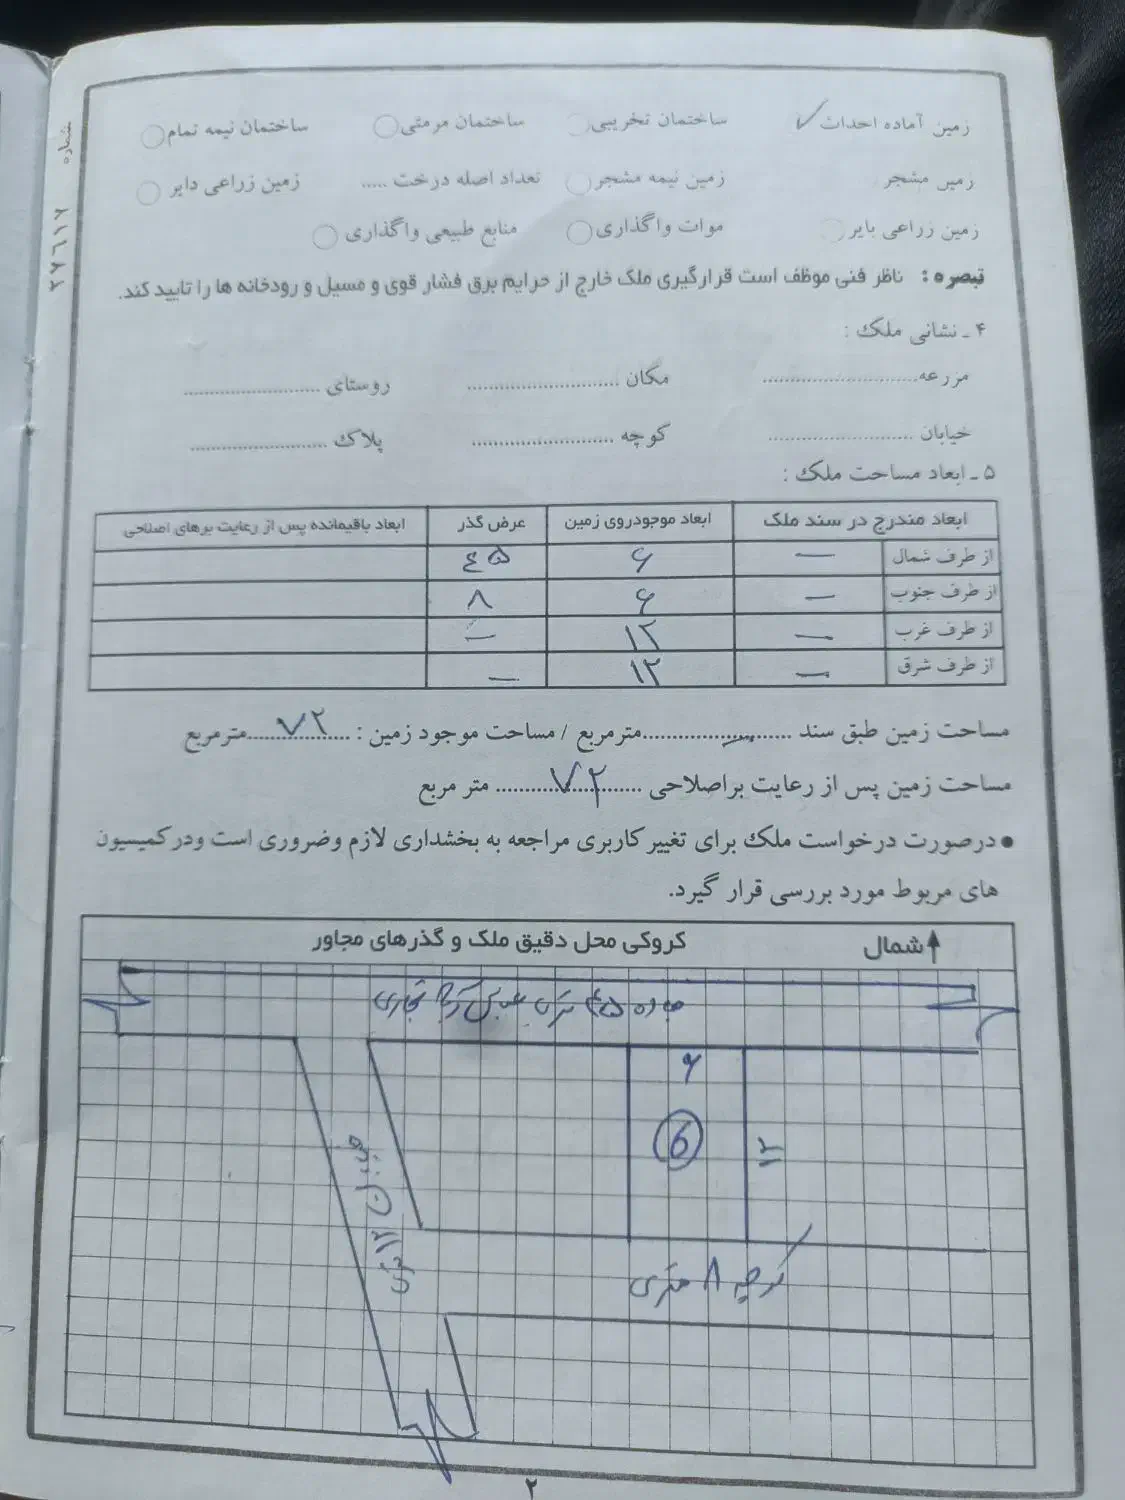 شماره ۲۷۶۱۷
زمین آماده احداث ✓ ساختمان تخریبی ساختمان مرمتی ساختمان نیمه تمام
زمین مشجر زمین نیمه مشجر تعداد اصله درخت ..... زمین زراعی دایر
زمین زراعی بایر موات واگذاری منابع طبیعی واگذاری
تبصره: ناظر فنی موظف است قرارگیری ملک خارج از حرایم برق فشار قوی و مسیل و رودخانه ها را تایید کند.
۴ ـ نشانی ملک :
مزرعه............................ مکان ............................ روستای .........................
خیابان .......................... کوچه .......................... پلاک .........................
۵ ـ ابعاد مساحت ملک :
ابعاد مندرج در سند ملک ابعاد موجودروی زمین عرض گذر ابعاد باقیمانده پس از رعایت برهای اصلاحی
از طرف شمال — ۶ ۴۵
از طرف جنوب — ۶ ۸
از طرف غرب — ۱۲ —
از طرف شرق — ۱۲ —
مساحت زمین طبق سند ...........—...........مترمربع / مساحت موجود زمین : ......۷۲......مترمربع
مساحت زمین پس از رعایت براصلاحی ......۷۲...... متر مربع
● درصورت درخواست ملک برای تغییر کاربری مراجعه به بخشداری لازم وضروری است ودرکمیسیون
های مربوط مورد بررسی قرار گیرد.
شمال کروکی محل دقیق ملک و گذرهای مجاور
جاده ۴۵ متری تجاری
۶
6
۱۲
خیابان ۱۲ متری
کوچه ۸ متری
۲